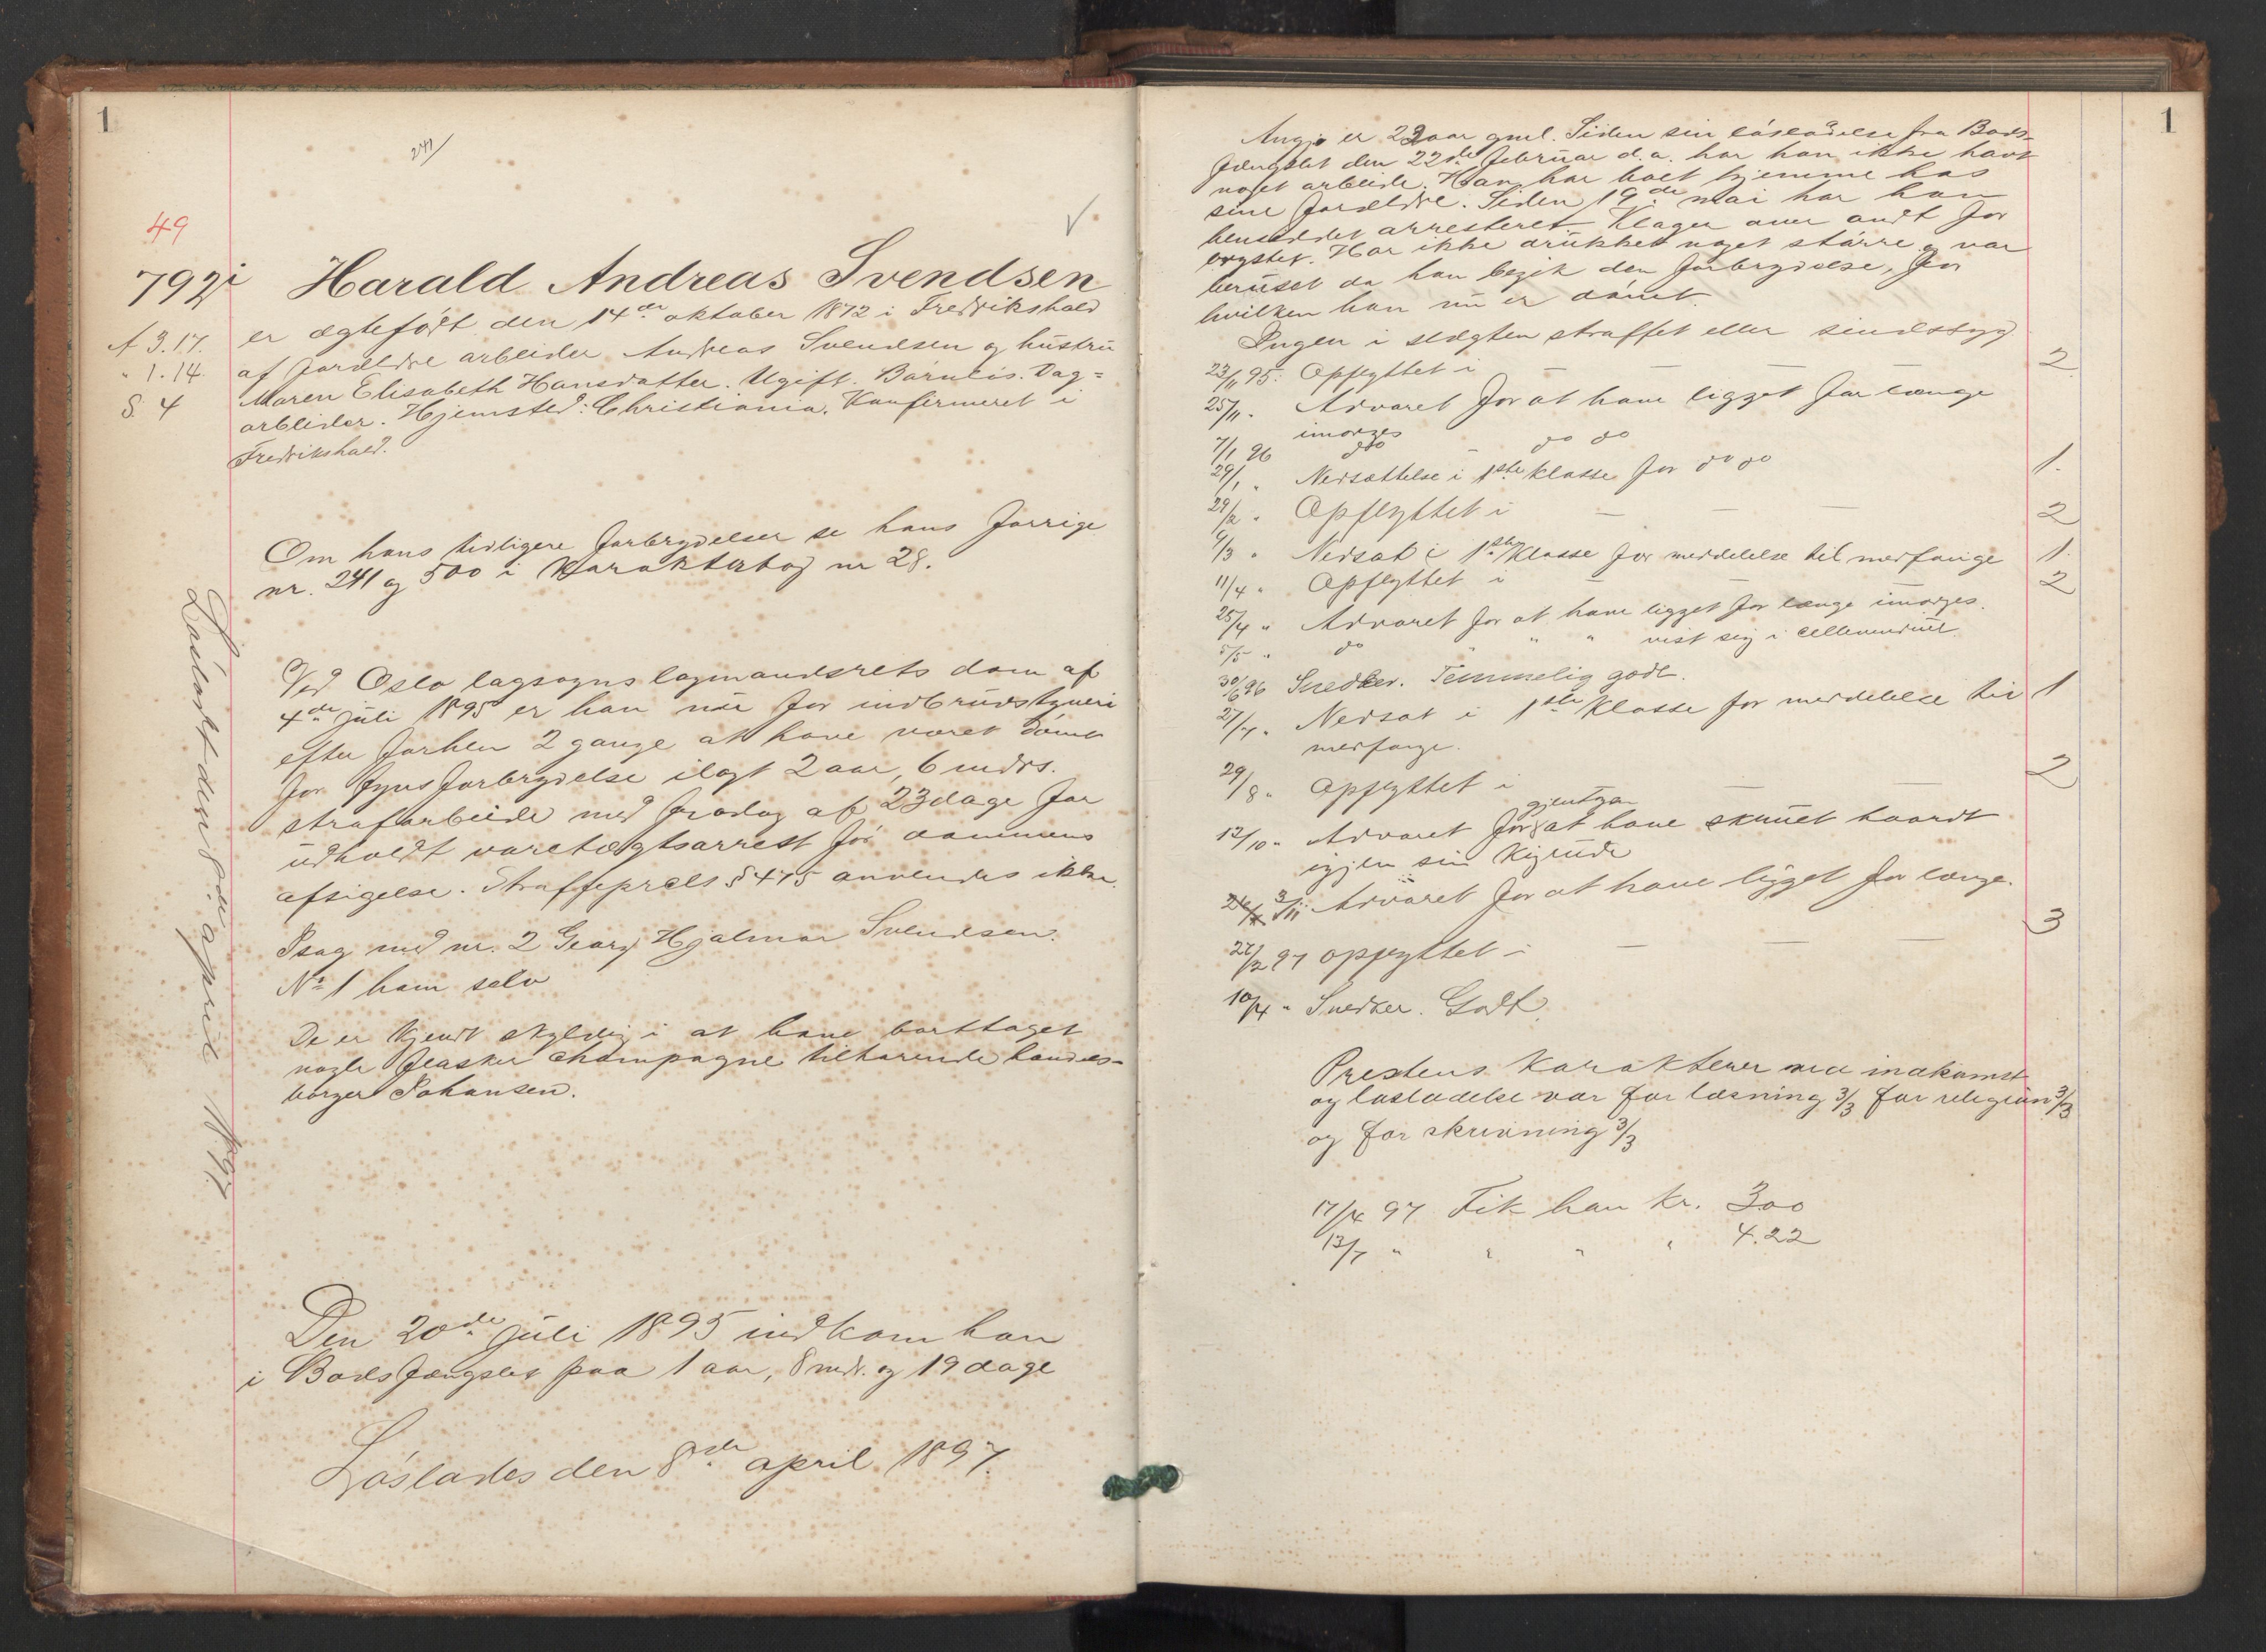 1
241/
49
792i Harald Andreas Svendsen
A 3.17. er ægtefødt den 14de oktober 1872 i Fredrikshald
" 1.14. af forældre arbeider Andreas Svendsen og hustru
S. 4 Maren Elisabeth Hansdatter. Ugift. Barnløs. Dag=
arbeider. Hjemsted: Christiania. Konfirmeret i
Fredrikshald.
Om hans tidligere forbrydelser se hans forrige
nr. 241 og 500 i Karakterbog nr 28.
Ved Oslo lagsogns lagmandsrets dom af
4de juli 1895 er han nu for indbrudstyveri
efter forhen 2 gange at have været dømt
for tyvsforbrydelse ilagt 2 aar, 6 mdrs.
strafarbeide med fradrag af 23 dage for
udholdt varetægtsarrest før dommens
afsigelse. Straffeprcls § 475 anvendes ikke.
Psag med nr. 2 Georg Hjalmar Svendsen.
No 1 ham selv
De er kjendt skyldig i at have borttaget
nogle flasker champagne tilhørende handels-
borger Johansen.
Den 20de juli 1895 indkom han
i Bodsfængslet paa 1 aar, 8 mdr. og 19 dage
Løslades den 8de april 1897.
Løsladt den 8de april 1897.
1
Angjo er 22 aar gml. Siden sin løsladelse fra Bods-
fængslet den 22de februar d.a. har han ikke havt
noget arbeide. Han har boet hjemme hos
sine forældre. Siden 19de mai har han
hensiddet arresteret. Klager over ondt for
brystet. Har ikke drukket noget større og var
beruset da han begik den forbrydelse, for
hvilken han nu er dømt.
Ingen i slægten straffet eller sindssyg.
23/11 95: Opflyttet i — — — 2.
25/11 " Advaret for at have ligget for længe
imorges
7/1 96 do do do
29/1 " Nedsættelse i 1ste klasse for do do 1.
29/2 " Opflyttet i — — — 2
9/3 " Nedsat i 1ste klasse for meddelelse til medfange 1.
11/4 " Opflyttet i — — — 2
25/4 " Advaret for at have ligget for længe imorges.
5/5 " do " " vist sig i cellevinduet.
30/6 96 Snedker. Temmelig godt.
27/7 " Nedsat i 1ste klasse for meddelelse til 1
medfange.
29/8 " Opflyttet i — — 2
12/10 " Advaret for gjentgn at have skruet haardt
igjen sin
3/11 Advaret for at have ligget for længe.
27/2 97 opflyttet i — — — 3
10/4 " Snedker. Godt.
Prestens karakterer ved indkomst
og løsladelse var for læsning 3/3 for religion 3/3
og for skrivning 3/3
17/4 97 Fik han kr. 3.00
13/7 " " " " 4.22